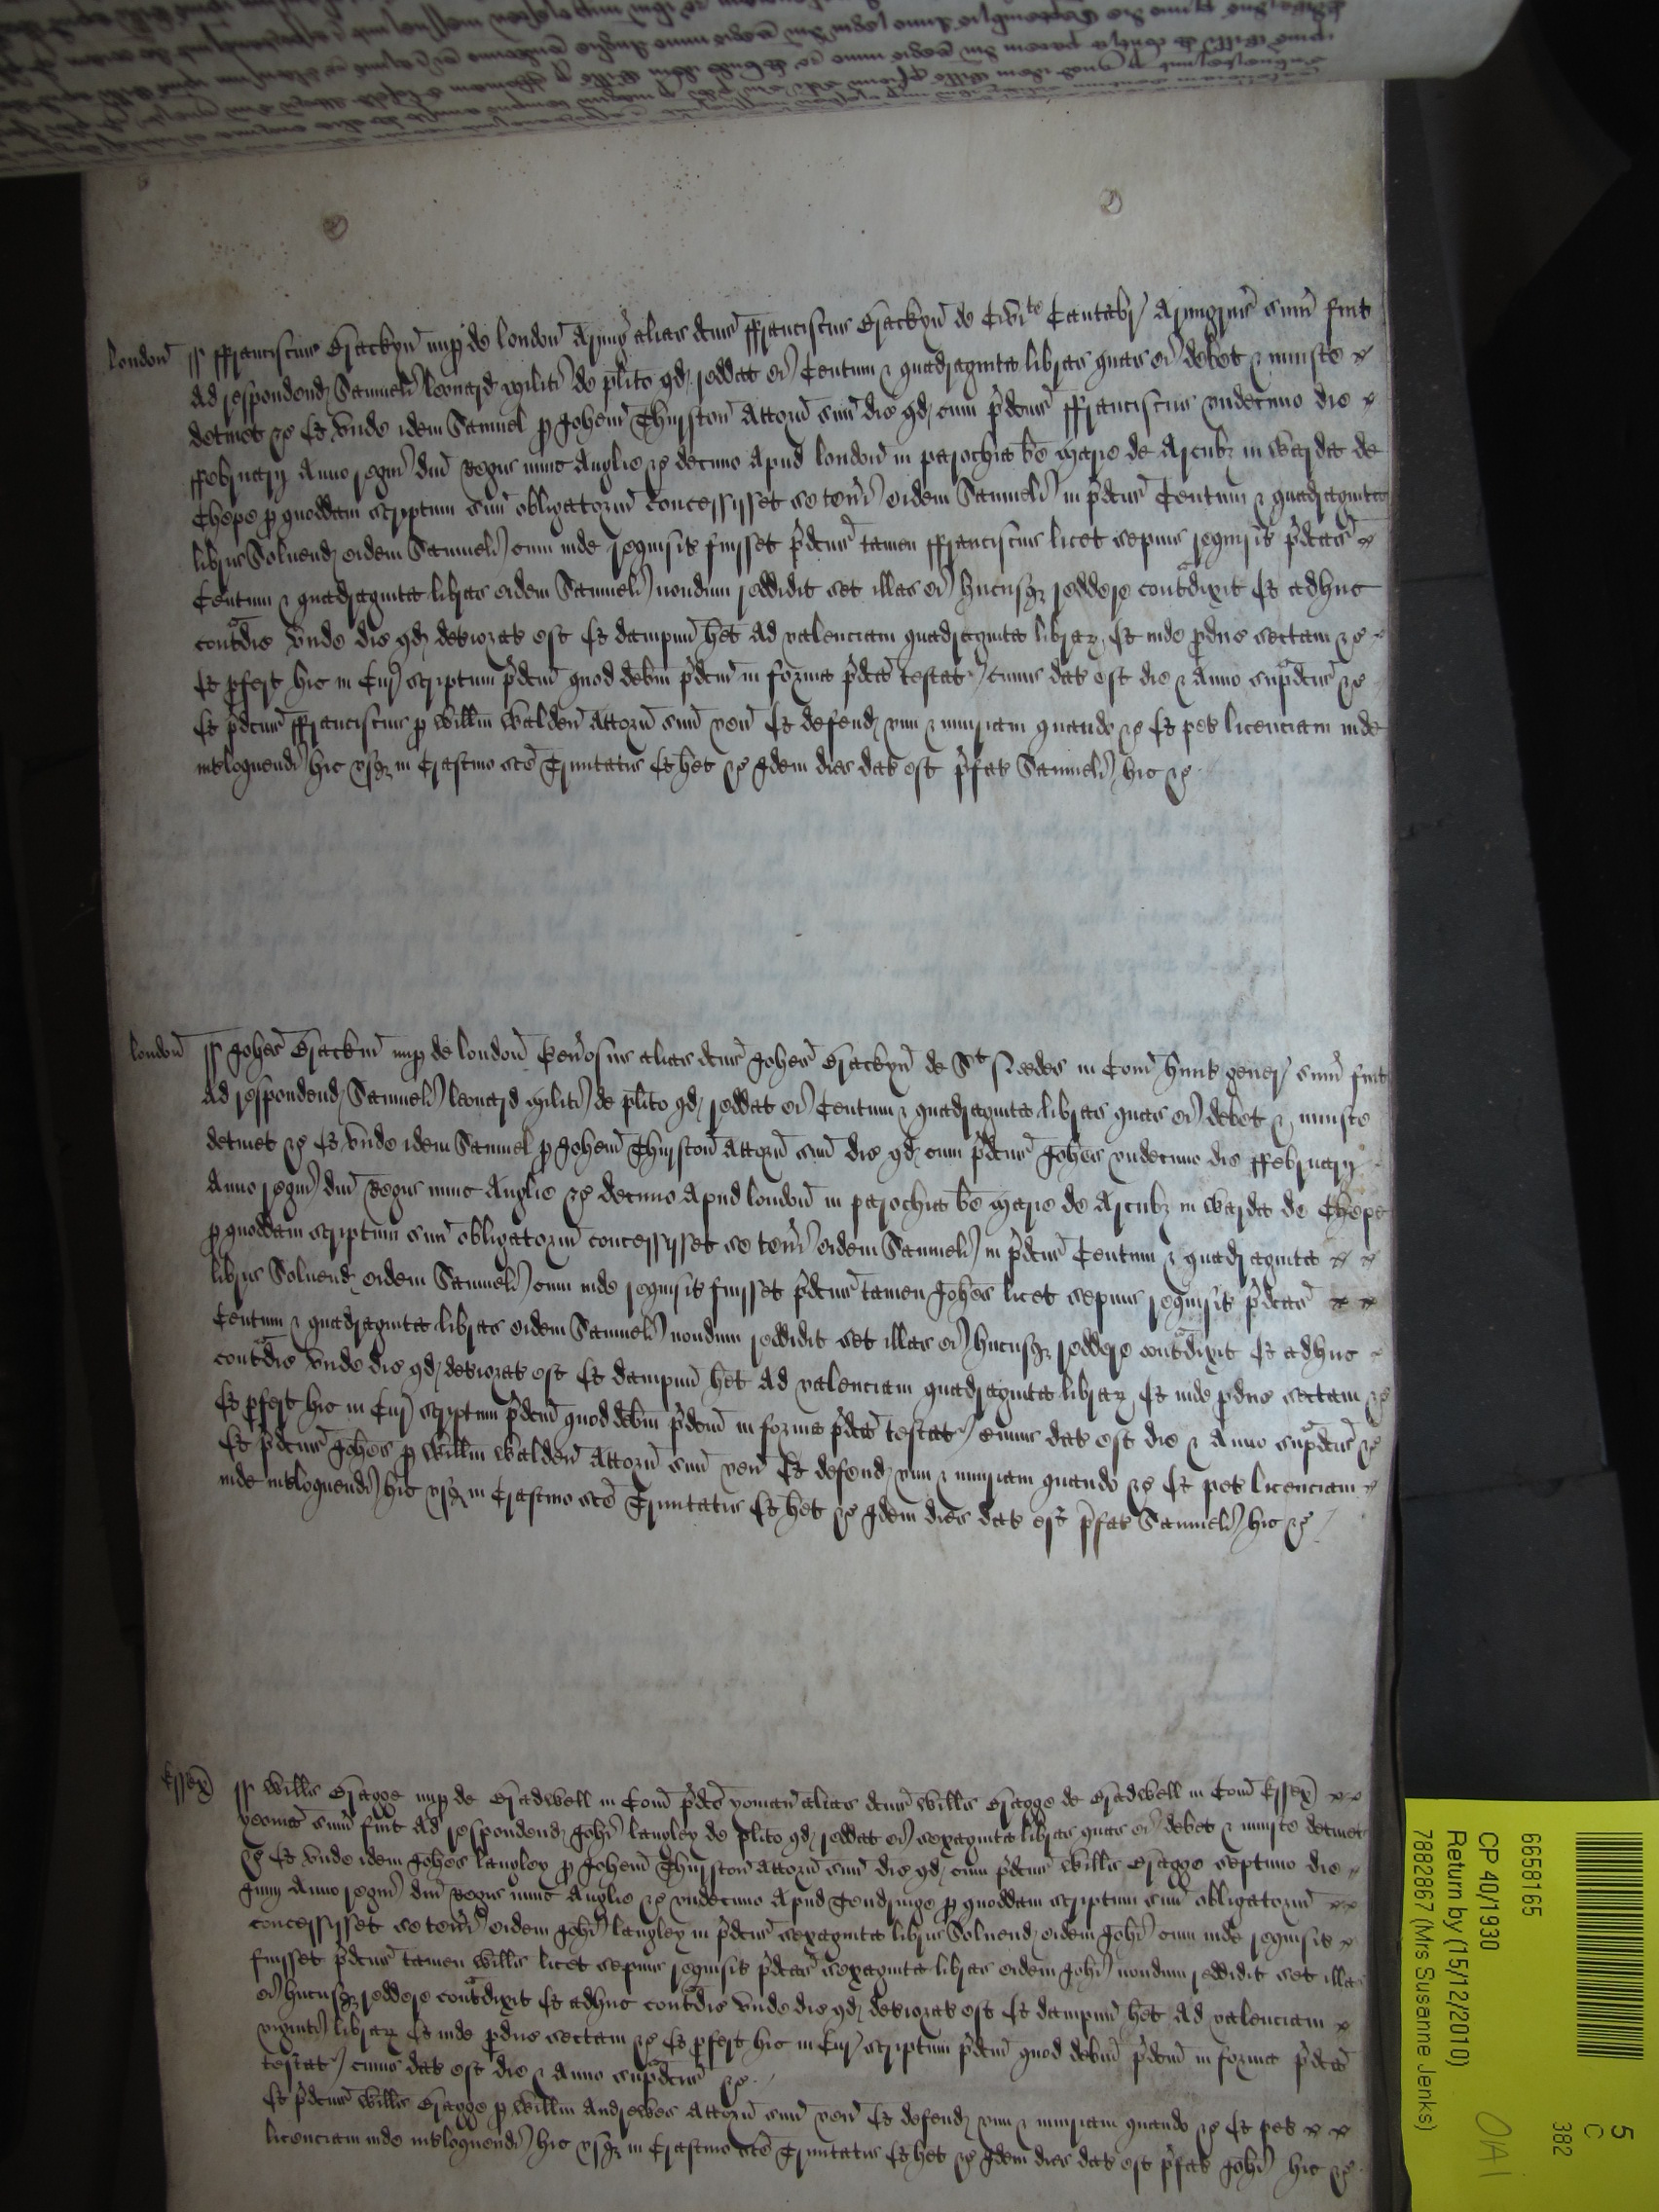 London ss Franciscus Brackyn nup de London Armig alias dcus Franciscus Brackyn de Civite Cantabr Armigeru sum fuit
Ad respondend Samueli Leonard militi de plito qd reddat ei Centum & quadraginta libras quas ei debet & iniuste
detinet &c Et unde idem Samuel p Johem Thurston Attorn suu dic qd cum pdcus Franciscus undecimo die
Februarii Anno regni dni Regis nunc Anglie &c decimo Apud London in parochia be Marie de Arcubz in Warda de
Chepe p quoddam scriptum suu obligatorium concessisset se teneri eidem Samueli in pdcis Centum & quadraginta
libris Solvend eidem Samueli cum inde requisit fuisset pdcus tamen Franciscus licet sepius requisit pdcas
Centum & quadraginta libras eidem Samueli nondum reddidit set illas ei hucusqz reddere contradixit Et adhuc
contradic unde dic qd deteriorat est Et dampnu het Ad valenciam quadraginta librar Et inde pduc sectam &c
Et pfert hic in Cur scriptum pdcm quod debm pdcm in forma pdca testat cuius dat est die & Anno supdcis &c
Et pdcus Franciscus p Willm Walden Attorn suu ven Et defend vim & iniuriam quando &c Et pet licenciam inde
intloquendi hic usqz in Crastino sce Trinitatis Et het &c Idem dies dat est pfat Samueli hic &c
London ss Johes Brackin nup de London Generosus alias dcus Johes Brackyn de St Needes in Com Hunt gener sum fuit
Ad respondend Samueli Leonard militi de plito qd reddat ei Centum & quadraginta libras quas ei debet & iniuste
detinet &c Et unde idem Samuel p Johem Thurston Attorn suu dic qd cum pdcus Johes undecimo die Februarii
Anno regni dni Regis nunc Anglie &c decimo Apud London in parochia be Marie de Arcubz in Warda de Chepe
p quoddam scriptum suu obligatorium concessisset se teneri eidem Samueli in pdcis Centum & quadraginta
libris Solvend eidem Samueli cum inde requisit fuisset pdcus tamen Johes licet sepius requisit pdcas
Centum & quadraginta libras eidem Samueli nondum reddidit set illas ei hucusqz reddere contradixit Et adhuc
contradic unde dic qd deteriorat est Et dampnu het Ad valenciam quadraginta librar Et inde pduc sectam &c
Et pfert hic in Cur scriptum pdcm quod debm pdcm in forma pdca testat cuius dat est die & Anno supdcis &c
Et pdcus Johes p Willm Walden Attorn suu ven Et defend vim & iniuriam quando &c Et pet licenciam
inde intloquendi hic usqz in Crastino sce Trinitatis Et het &c Idem dies dat est pfat Samueli hic &c
Essex ss Willus Bragge nup de Bradwell in Com pdco yoman alias dcus Willus Bragge de Bradwell in Com Essex
yeoma sum fuit Ad respondend Johi Langley de plito qd reddat ei sexaginta libras quas ei debet & iniuste detinet
&c Et unde idem Johes Langley p Johem Thurston Attorn suu dic qd cum pdcus Willus Bragge septimo die
Junii Anno regni dni Regis nunc Anglie &c undecimo Apud Tendringe p quoddam scriptum suu obligatorium
concessisset se teneri eidem Johi Langley in pdcis sexaginta libris Solvend eidem Johi cum inde requisit
fuisset pdcus tamen Willus licet sepius requisit pdcas sexaginta libras eidem Johi nondum reddidit set illas
ei hucusqz reddere contradixit Et adhuc contradic unde dic qd deteriorat est Et dampnu het Ad valenciam
viginti librar Et inde pduc sectam &c Et pfert hic in Cur scriptum pdcm quod debm pdcm in forma pdca
testat cuius dat est die & Anno supdcis &c
Et pdcus Willus Bragge p Willm Andrewes Attorn suu ven Et defend vim & iniuriam quando &c Et pet
licenciam inde intloquendi hic usqz in Crastino sce Trinitatis Et het &c Idem dies dat est pfat Johi hic &c
6658165
CP 40/1930
Return by (15/12/2010)
7882867 (Mrs Susanne Jenks)
5
C
382